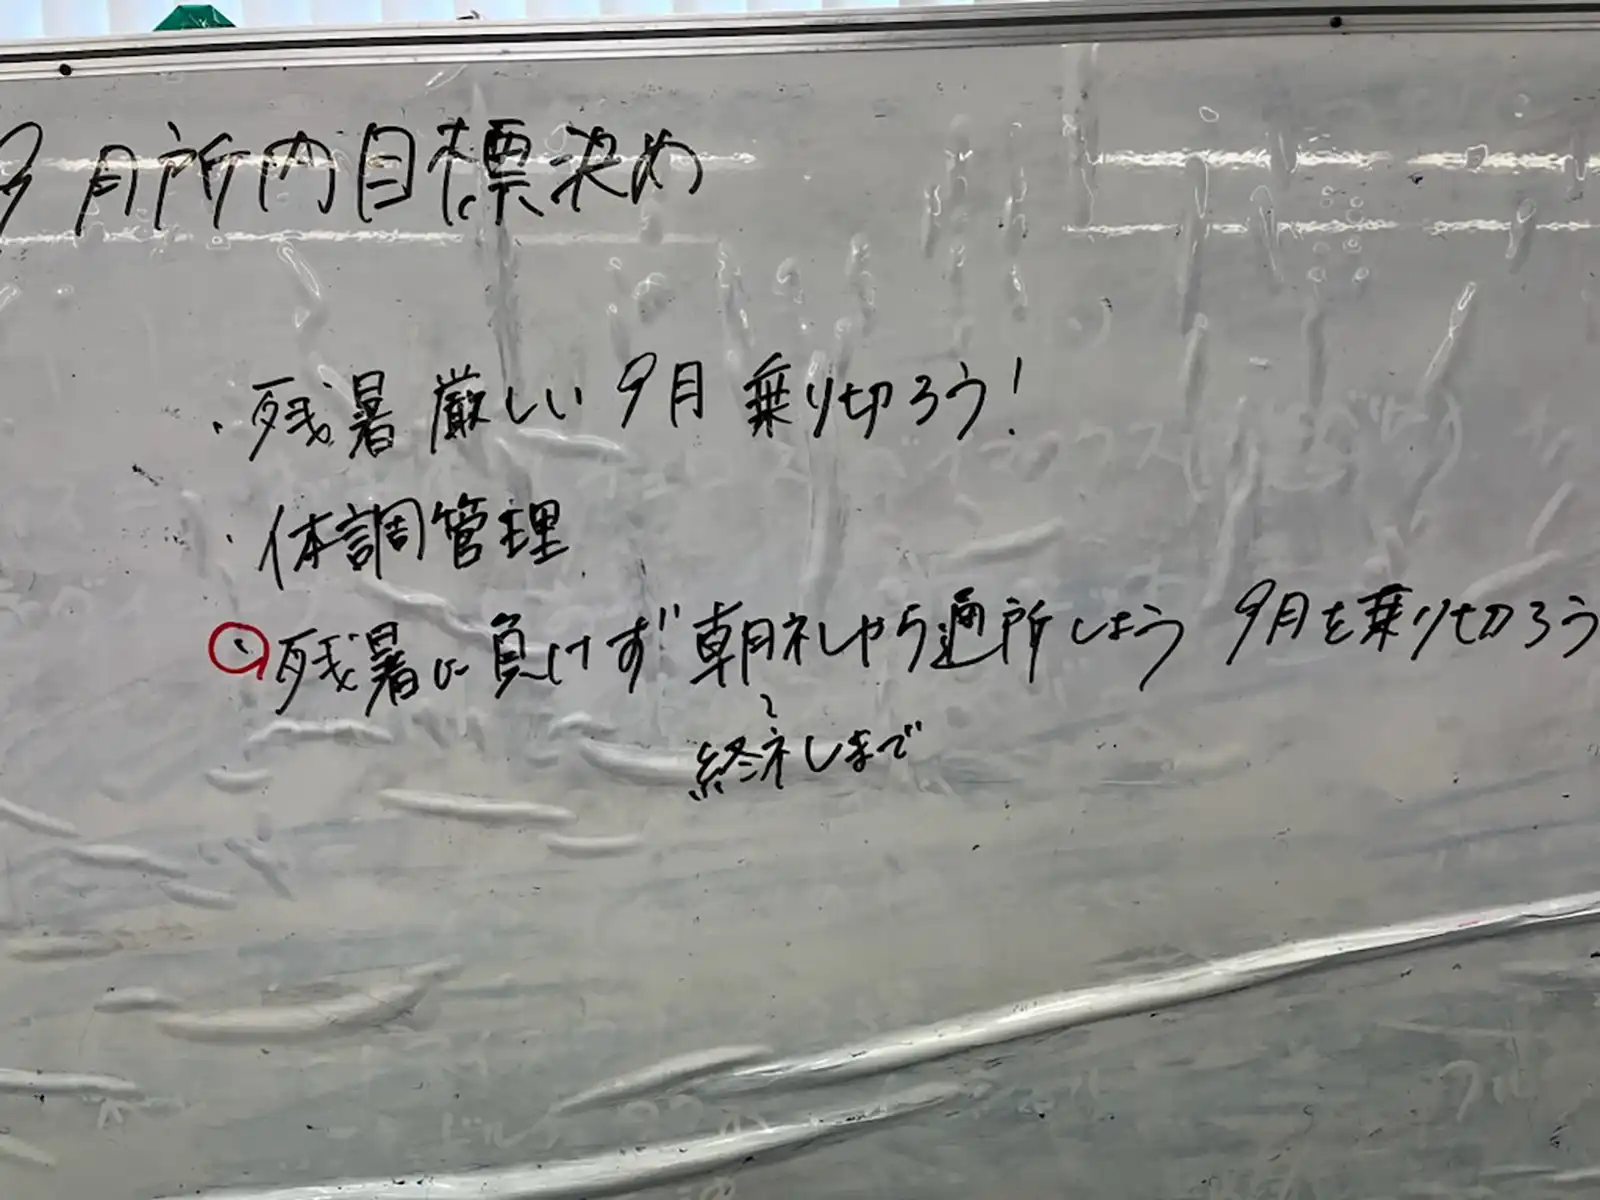 9月所内目標決め
・残暑厳しい9月乗り切ろう!
・体調管理
・残暑に負けず朝礼から通所しよう 9月を乗り切ろう
〜
終礼まで